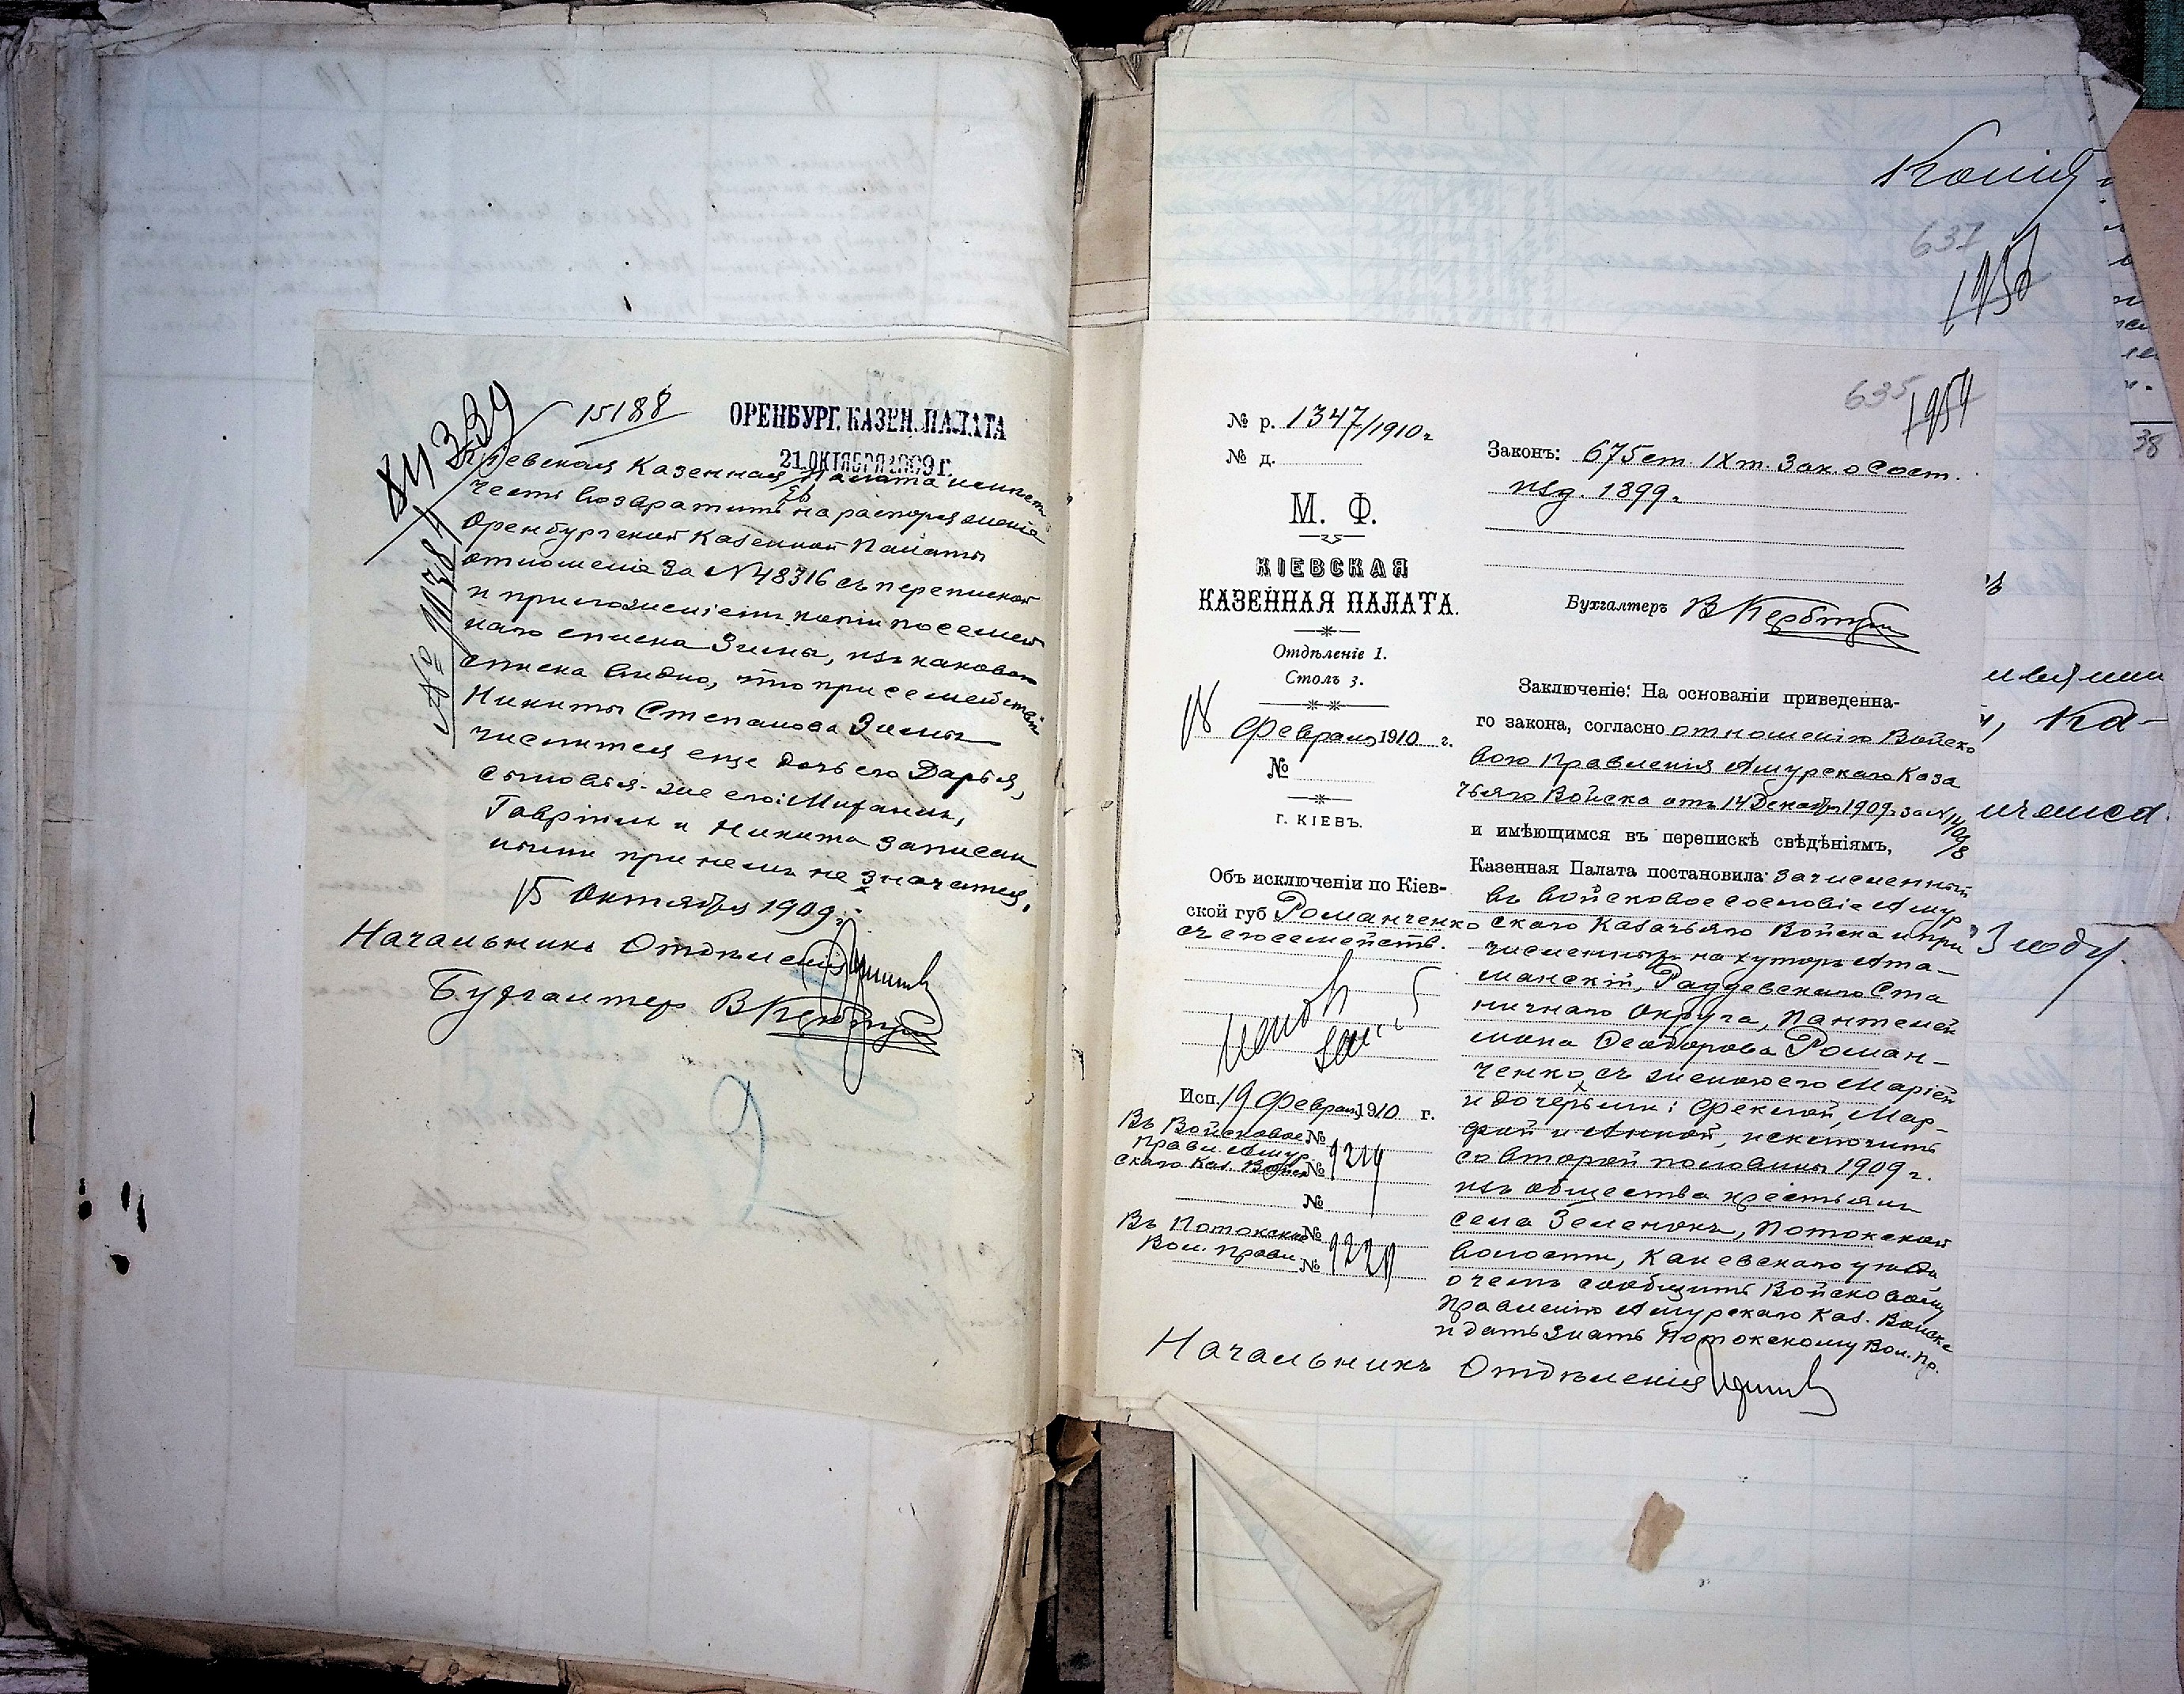 15188
ОРЕНБУРГ. КАЗЕН. ПАЛАТА
21 ОКТЯБРЯ 1909 г.
84339
Кіевская Казенная Палата имѣетъ
честь возвратить въ распоряженіе
Оренбургской Казенной Палаты
отношеніе за №48316 съ перепиской
и приложеніемъ копіи посемей
наго списка Зимы, изъ каковаго
списка видно, что при семействѣ
Никиты Степанова Зимы
числится еще дочь его Дарья,
сыновья-же его: Михаилъ,
Гавріилъ и Никита записан
ными при немъ не значатся.
15 Октября 1909 г.
Начальникъ Отдѣленія
Бухгалтеръ В Кербут
Копія
637
1958
635
1957
№ р. 1347/1910 г
№ д.
М. Ф.
КІЕВСКАЯ
КАЗЕННАЯ ПАЛАТА.
Отдѣленіе 1.
Столъ 3.
18 Февраля 1910 г.
№
Г. КІЕВЪ.
Объ исключеніи по Кіев-
ской губ Романченко
съ его семейств.
Исп. 19 Февраля 1910 г.
Въ Войсковое №
Правл. Амур
скаго Каз. Войска № 9219
№
Въ Потокское №
Вол. Правл. № 9220
Законъ: 675 ст. IX т. Зак. о Сост.
изд. 1899 г.
Бухгалтеръ В Кербут
Заключеніе: На основаніи приведенна-
го закона, согласно отношенію Войско
вого Правленія Амурскаго Каза
чьяго Войска отъ 14 Декабря 1909 г. за №
и имѣющимся въ перепискѣ свѣдѣніямъ,
Казенная Палата постановила: зачисленный
въ войсковое сословіе Амур
скаго Казачьяго Войска и при
численный на хуторъ Ата-
манскій, Раддевскаго Ста
ничнаго Округа, Пантелей
мона Ѳеодорова Роман-
ченко, съ женою его Маріей
и дочерьми: Ѳеклой, Мар-
фой и Анной, исключить
со второй половины 1909 г.
изъ общества крестьянъ
села Зеленокъ, Потокской
волости, Каневскаго уѣзда,
о чемъ сообщить Войсковому
Правленію Амурскаго Каз. Войска
и дать знать Потокскому Вол. Пр.
Начальникъ Отдѣленія